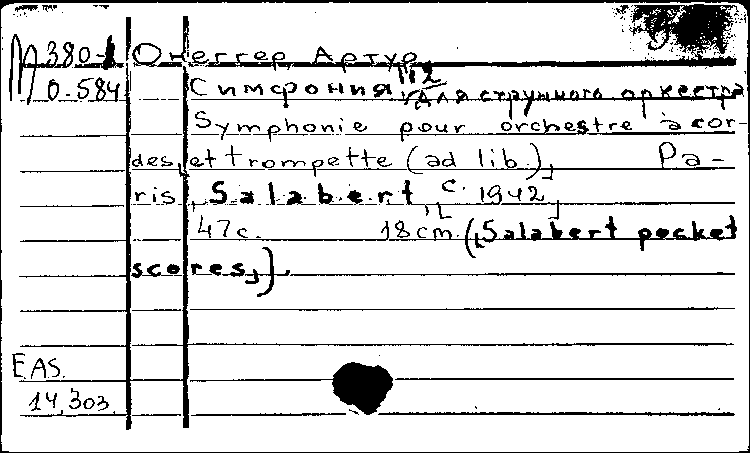 М380-1 Онеггер, Артур.
О-584 Симфония №2 для струнного оркестра
Symphonie pour orchestre à cor-
des, et trompette (ad lib.), Pa-
ris, Salabert, c. 1942,
47с. 18cm. (Salabert pocket
scores,).
EAS.
14,303